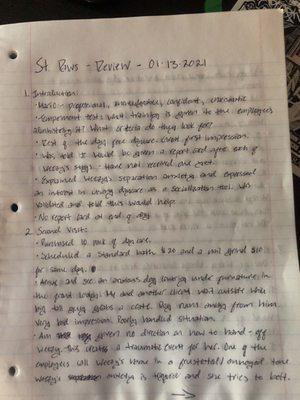 St. Paws - Review - 01-13-2021
1. Introduction:
• Mario - professional, knowledgeable, confident, charismatic
• Temperment test: what training is given to the employees
administering it? What criteria do they look for?
• Rest of the day free daycare. Great first impression.
• Was told I would be given a report card after each of
Weezy's stays. Have not received one yet.
• Explained Weezy's separation anxiety and expressed
an interest in using daycare as a socialization tool. Was
validated and told this would help.
• No report card at end of day.
2. Second Visit:
• Purchased 10 pack of daycare.
• Scheduled a standard bath $20 and a nail grind $10
for same day.
• Arrive and see an anxious dog cowering under furniture in
the front lobby. Me and another client wait outside while
big tall guy grabs a crate. Dog runs away from him
Very bad impression. Poorly handled situation.
• Am given no direction on how to hand-off
Weezy. This creates a traumatic event for her. One of the
employees yell Weezy's name in a frustrated/annoyed tone.
Weezy's anxiety is triggered and she tries to bolt.